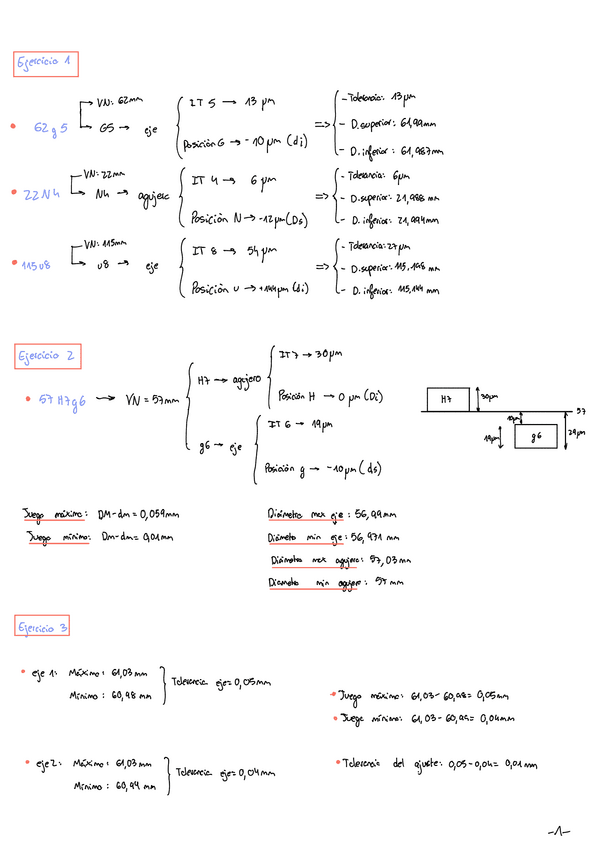 Ejercicio 1
62g5
VN: 62mm
G5 → eje
IT 5 → 13 µm
Posición G → -10 µm (di)
=>
- Tolerancia: 13 µm
- D. superior: 61,99mm
- D. inferior: 61,987mm
22N4
VN: 22mm
N4 → agujero
IT 4 → 6 µm
Posición N → -12µm (Ds)
=>
- Tolerancia: 6µm
- D. superior: 21,988 mm
- D. inferior: 21,994mm
115u8
VN: 115mm
u8 → eje
IT 8 → 54 µm
Posición u → +144µm (di)
=>
- Tolerancia: 27µm
- D. superior: 115,198 mm
- D. inferior: 115,144 mm
Ejercicio 2
57 H7g6 → VN = 57mm
H7 → agujero
IT7 → 30µm
Posición H → 0 µm (Di)
g6 → eje
IT 6 → 19µm
Posición g → -10µm (ds)
H7
30µm
57
10µm
19µm
g6
29µm
Juego máximo: DM-dm = 0,059mm
Juego mínimo: Dm-dm = 0,01mm
Diámetro max eje: 56,99mm
Diámeto min eje: 56,971 mm
Diámetro max agujero: 57,03mm
Diametro min agujero: 57 mm
Ejercicio 3
eje 1: Máximo: 61,03 mm
Mínimo: 60,98 mm
Tolerancia eje = 0,05mm
Juego máximo: 61,03 - 60,98 = 0,05mm
Juego mínimo: 61,03 - 60,99 = 0,04mm
eje 2: Máximo: 61,03 mm
Mínimo: 60,94 mm
Tolerancia eje = 0,04mm
Tolerancia del ajuste: 0,05 - 0,04 = 0,01mm
-1-